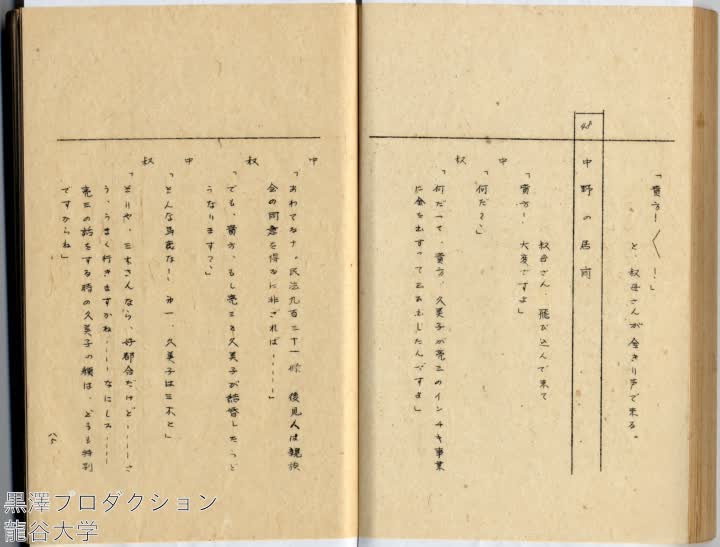 「貴方！〱！」
と、叔母さんが金きり声で来る。
48 中野の居間
叔母さん、飛び込んで来て
「貴方！ 大変ですよ」
中
「何だ？」
叔
「何だって、貴方、久美子が亮三のインチキ事業
に金を出すって云あ出したんですよ」
中
「あわてるナ。民法九百二十一條 後見人は親族
会の同意を得るに非ざれば‥‥‥」
叔
「でも、貴方、もし亮三と久美子が結婚したらど
うなります？」
中
「どんな馬鹿な！ 第一、久美子は三木と」
叔
「そりや、三木さんなら、好都合だけど‥‥‥さ
う、うまく行きますかね‥‥‥なにしろ‥‥‥
亮三の話をする時の久美子の顔は、どうも特別
ですからね」
黒澤プロダクション
龍谷大学